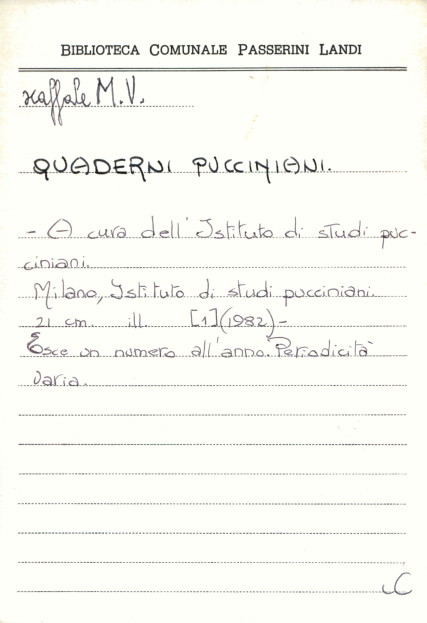 BIBLIOTECA COMUNALE PASSERINI LANDI
scaffale M.V.
QUADERNI PUCCINIANI.
- A cura dell'Istituto di studi puc-
ciniani.
Milano, Istituto di studi pucciniani.
21 cm. ill. [1](1982)-
Esce un numero all'anno. Periodicità
varia.